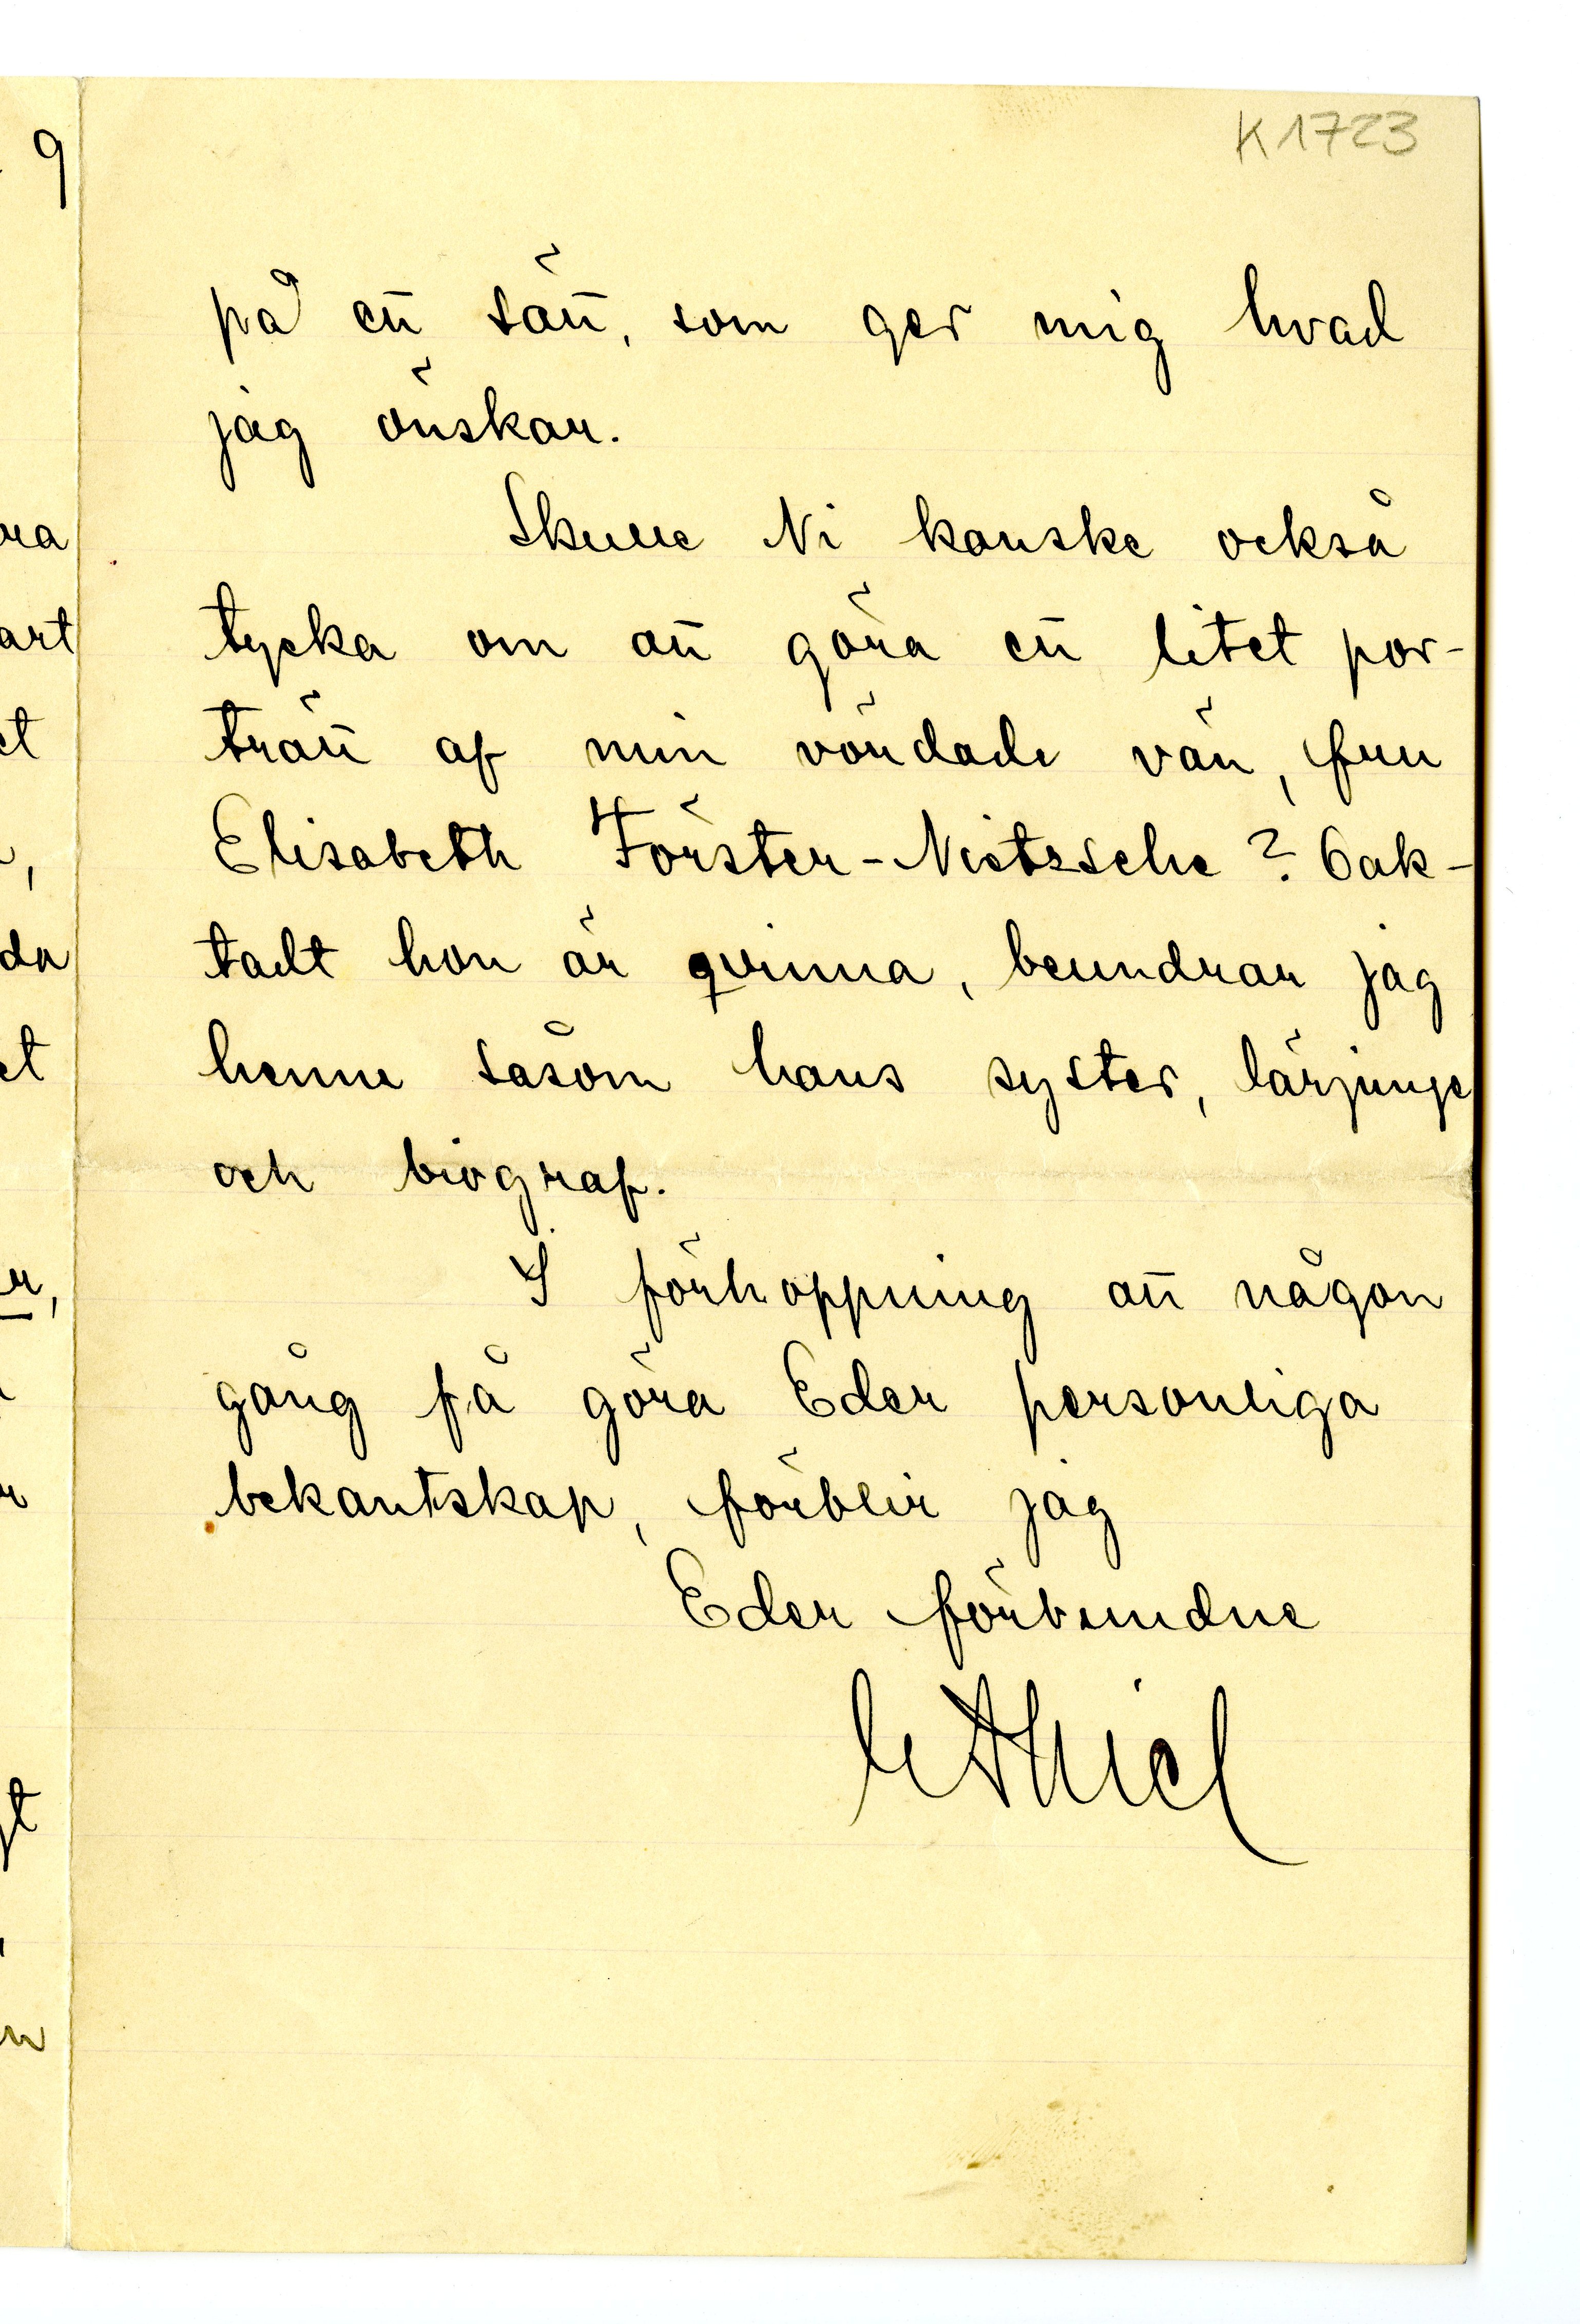 K1723
9
på ett sätt, som ger mig hvad
jag önskar.
Skulle Ni kanske också
tycka om att göra ett litet por-
trätt af min vördade vän, fru
Elisabeth Förster-Nietzsche? Oak-
tadt hon är qvinna, beundrar jag
henne såsom hans syster, lärjunge
och biograf.
I förhoppning att någon
gång få göra Eder personliga
bekantskap, förblir jag
Eder förbundne
E Thiel
ra
art
et
,
da
et
r,
r
gt
n